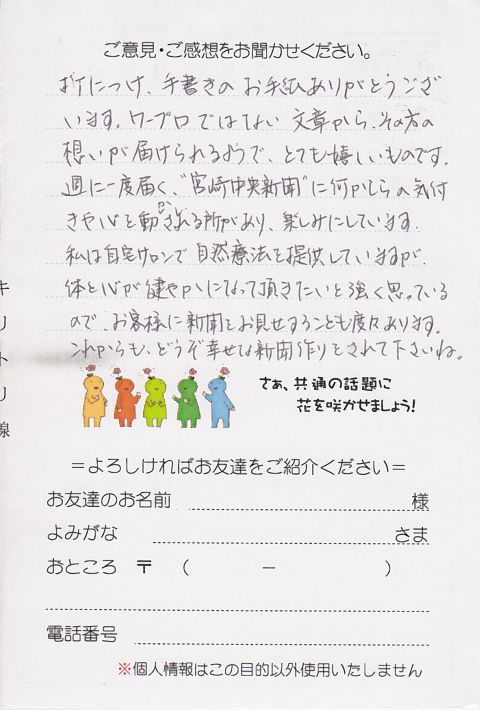 ご意見・ご感想をお聞かせください。
折につけ、手書きのお手紙ありがとうござ
います。ワープロではない文章から、その方の
想いが届けられるようで、とても嬉しいものです。
週に一度届く、"宮崎中央新聞"に何かしらの気付
きや心を動かされる所があり、楽しみにしています。
私は自宅サロンで自然療法を提供していますが、
体と心が健やかになって頂きたいと強く思っている
ので、お客様に新聞をお見せすることも度々あります。
これからも、どうぞ幸せな新聞作りをされて下さいね。
キリトリ線
さぁ、共通の話題に
花を咲かせましょう!
=よろしければお友達をご紹介ください=
お友達のお名前 様
よみがな さま
おところ 〒 ( − )
電話番号
※個人情報はこの目的以外使用いたしません